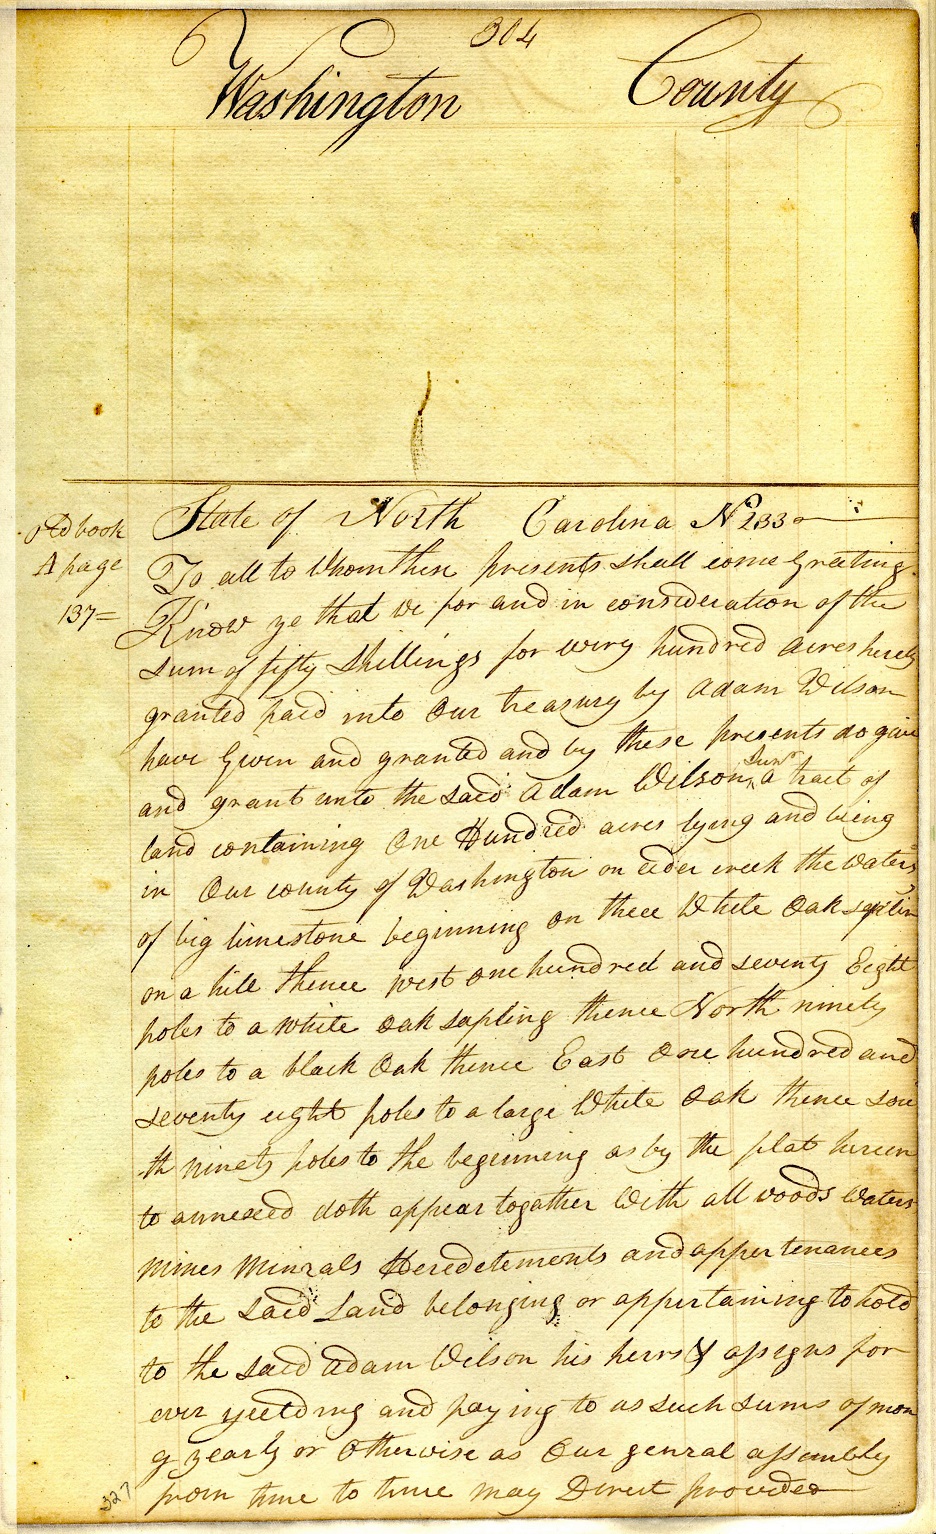 304
Washington County
Old book
A page
137=
State of North Carolina No 133
To all to Whom these presents shall come Greeting
Know ye that we for and in consideration of the
sum of fifty Shillings for every hundred acres hereby
granted paid into Our treasury by Adam Wilson
have Given and granted and by these presents do give
and grant unto the said Adam Wilson, a tract of
land containing One Hundred acres lying and being
in Our county of Washington on ceder creek the waters
of big limestone beginning on thee White Oak saplin
on a hill thence west one hundred and seventy Eight
poles to a white Oak sapling thence North ninety
poles to a black Oak thence East One hundred and
seventy eight poles to a large White Oak thence sou
th ninety poles to the beginning as by the plat hereun
to annexed doth appear together With all woods Waters
mines Minrals Heredetements and appertenances
to the Said Land belonging or appertaining to hold
to the said Adam Wilson his heirs & assigns for
ever yeelding and paying to us such sums of mon
y yearly or Otherwise as Our genral assembly
from time to time may Direct provided
327